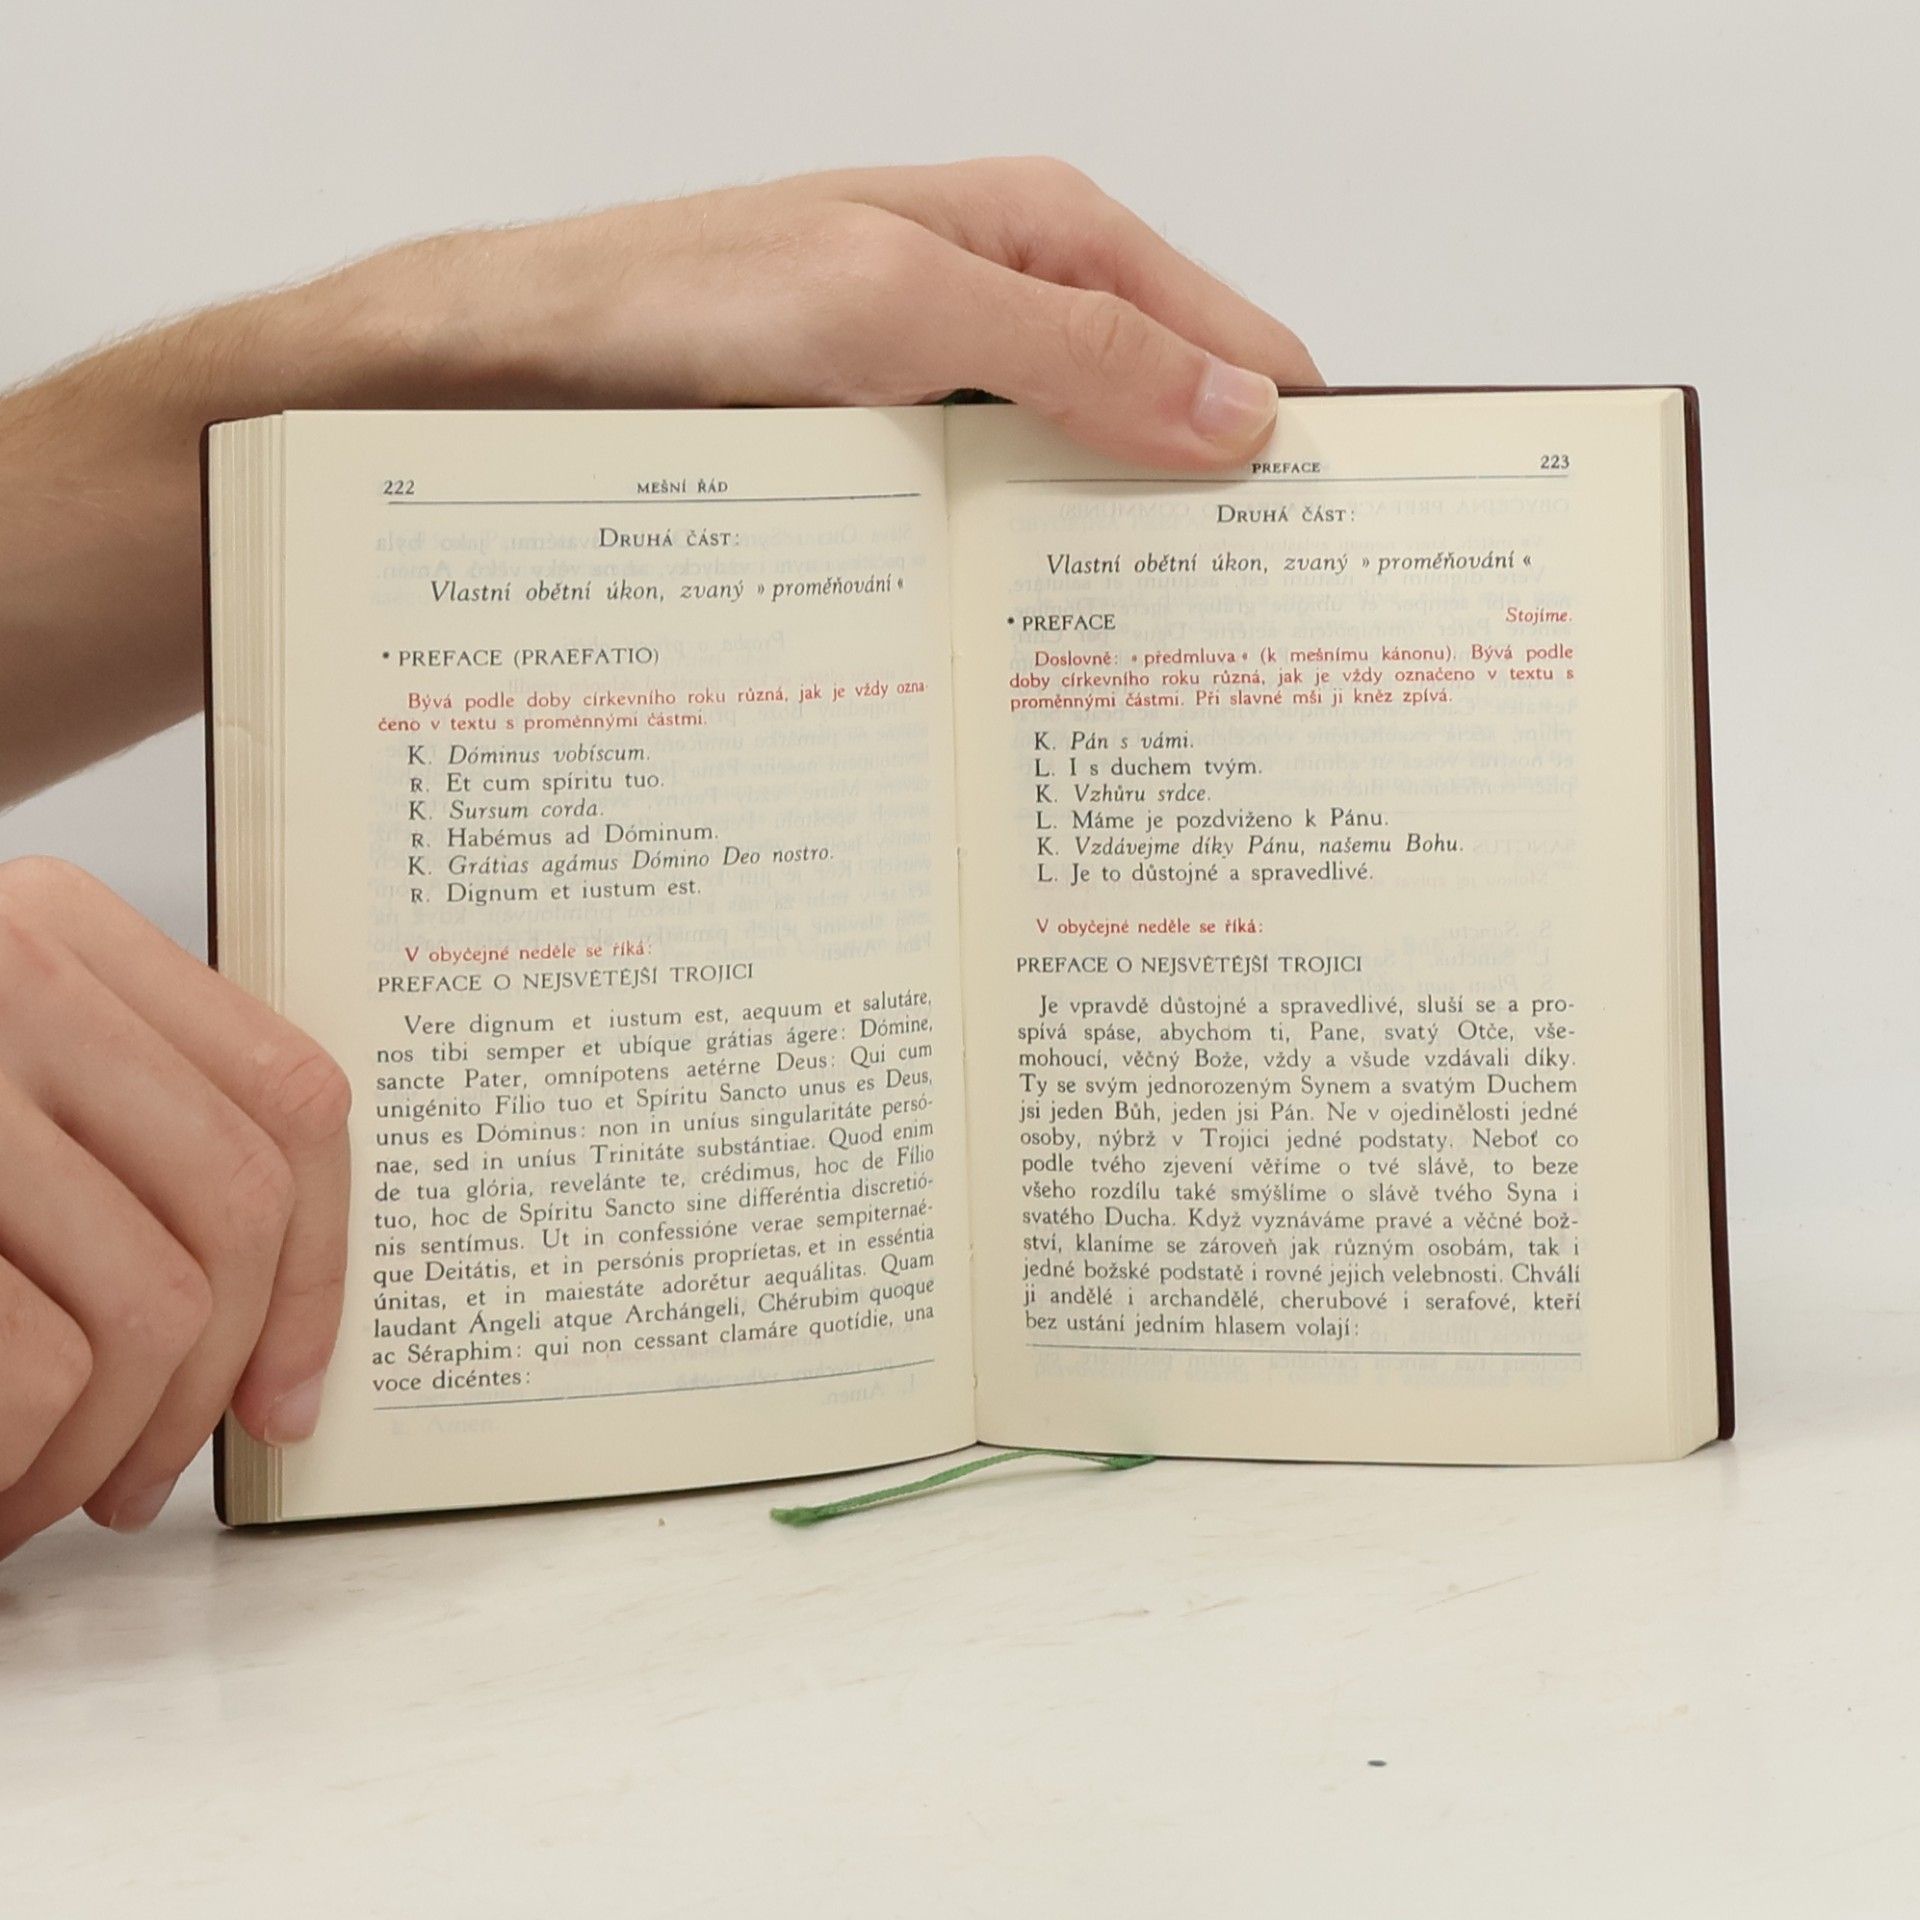 222
MEŠNÍ ŘÁD
DRUHÁ ČÁST:
Vlastní obětní úkon, zvaný » proměňování «
* PREFACE (PRAEFATIO)
Bývá podle doby církevního roku různá, jak je vždy ozna-
čeno v textu s proměnnými částmi.
K. Dóminus vobíscum.
R. Et cum spíritu tuo.
K. Sursum corda.
R. Habémus ad Dóminum.
K. Grátias agámus Dómino Deo nostro.
R. Dignum et iustum est.
V obyčejné neděle se říká:
PREFACE O NEJSVĚTĚJŠÍ TROJICI
Vere dignum et iustum est, aequum et salutáre,
nos tibi semper et ubíque grátias ágere: Dómine,
sancte Pater, omnípotens aetérne Deus: Qui cum
unigénito Fílio tuo et Spíritu Sancto unus es Deus,
unus es Dóminus: non in uníus singularitáte persó-
nae, sed in uníus Trinitáte substántiae. Quod enim
de tua glória, revelánte te, crédimus, hoc de Fílio
tuo, hoc de Spíritu Sancto sine differéntia discretió-
nis sentímus. Ut in confessióne verae sempiternaé-
que Deitátis, et in persónis propríetas, et in esséntia
únitas, et in maiestáte adorétur aequálitas. Quam
laudant Ángeli atque Archángeli, Chérubim quoque
ac Séraphim: qui non cessant clamáre quotídie, una
voce dicéntes:
PREFACE
223
DRUHÁ ČÁST:
Vlastní obětní úkon, zvaný » proměňování «
* PREFACE
Stojíme.
Doslovně: » předmluva « (k mešnímu kánonu). Bývá podle
doby církevního roku různá, jak je vždy označeno v textu s
proměnnými částmi. Při slavné mši ji kněz zpívá.
K. Pán s vámi.
L. I s duchem tvým.
K. Vzhůru srdce.
L. Máme je pozdviženo k Pánu.
K. Vzdávejme díky Pánu, našemu Bohu.
L. Je to důstojné a spravedlivé.
V obyčejné neděle se říká:
PREFACE O NEJSVĚTĚJŠÍ TROJICI
Je vpravdě důstojné a spravedlivé, sluší se a pro-
spívá spáse, abychom ti, Pane, svatý Otče, vše-
mohoucí, věčný Bože, vždy a všude vzdávali díky.
Ty se svým jednorozeným Synem a svatým Duchem
jsi jeden Bůh, jeden jsi Pán. Ne v ojedinělosti jedné
osoby, nýbrž v Trojici jedné podstaty. Neboť co
podle tvého zjevení věříme o tvé slávě, to beze
všeho rozdílu také smýšlíme o slávě tvého Syna i
svatého Ducha. Když vyznáváme pravé a věčné bož-
ství, klaníme se zároveň jak různým osobám, tak i
jedné božské podstatě i rovné jejich velebnosti. Chválí
ji andělé i archandělé, cherubové i serafové, kteří
bez ustání jedním hlasem volají: